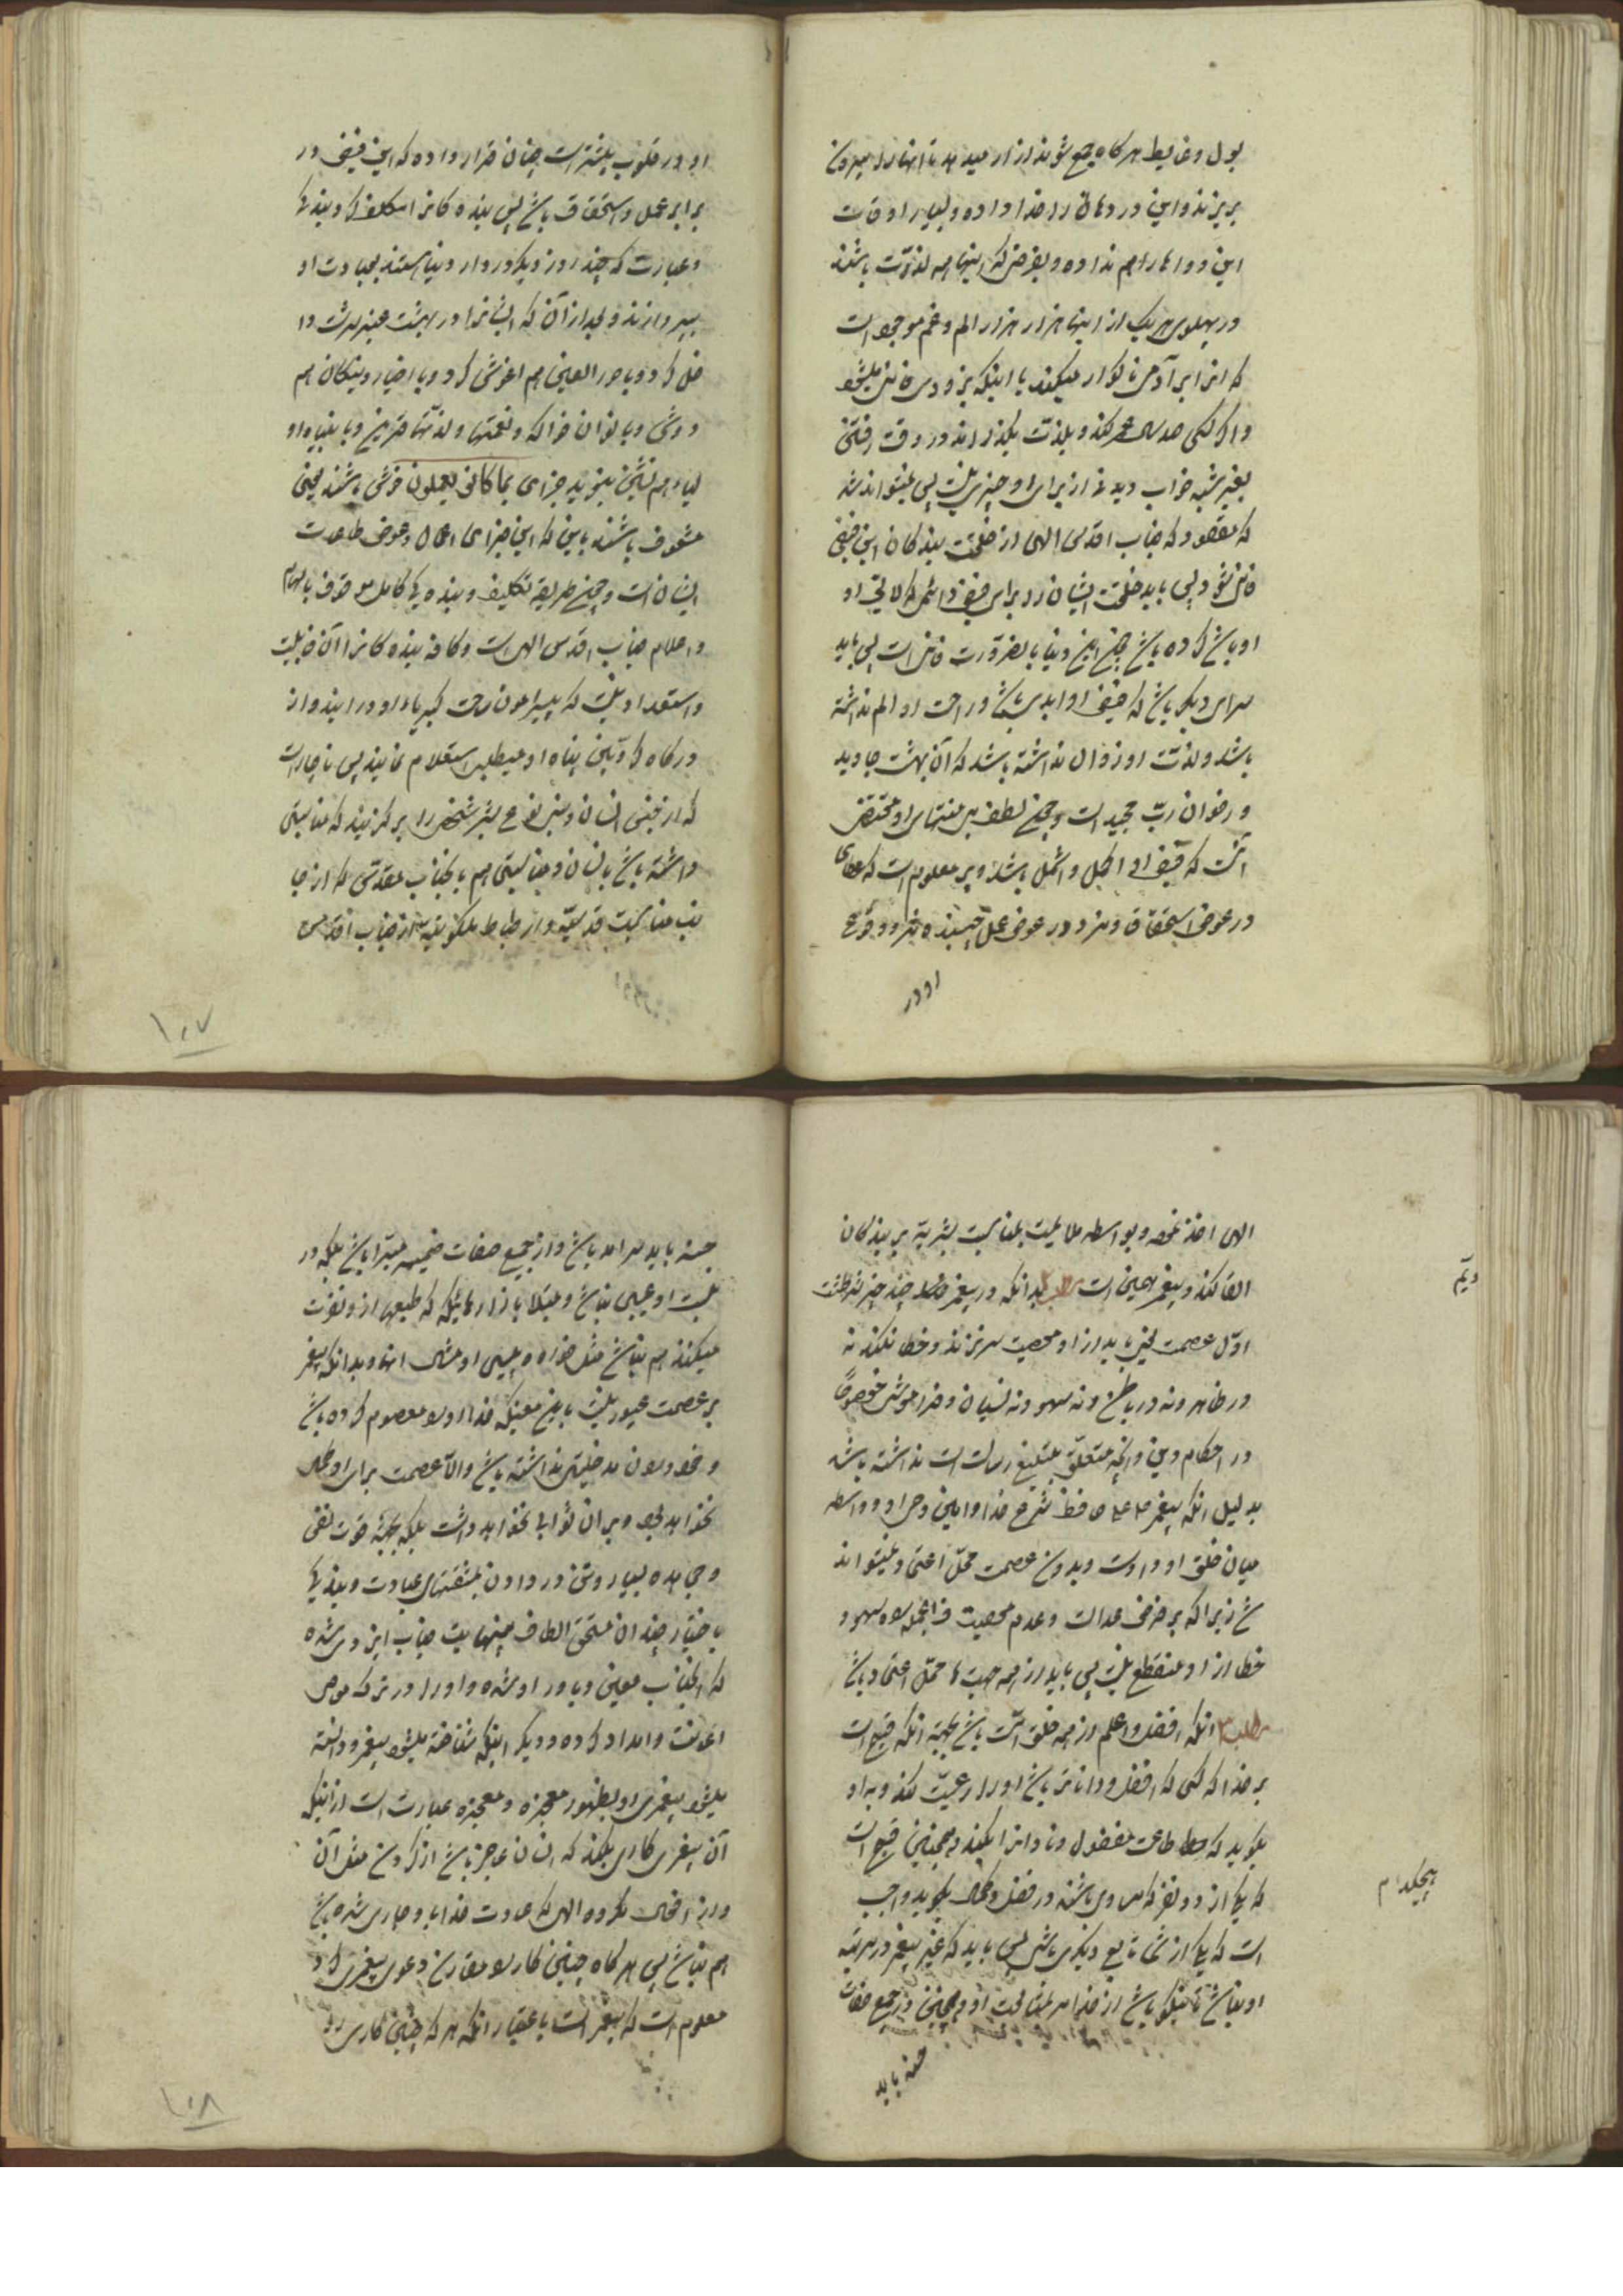 بول و غایط هر کاه جمع شوند ازار میدهد تا انها را بیرون
بریزند و این درد مان را خدا داده و بسیار اوقات
این دواها را هم نداده و بفرض که اینها همه لذت باشند
در پهلوی هریک از اینها هزار هزار الم و غم موجود است
که انرا بر آدمی ناکوار میکند با اینکه بزودی فانی میشود
و اگر کسی صد سال عمر کند و بلذت بکذراند در وقت رفتن
بغیر شبه خواب دیدن از برای او چیزی نیست پس نمیتواند شد
که مقصود که جناب اقدس الهی از خلقت بندکان این فیض
فانی شود پس باید خلقت ایشان را برای فیض دائمی که لایق او
او باشد کرده باشد چون این دنیا بالضرورت فانی است پس باید
سرای دیکر باشد که فیض او ابدی باشد و راحت او الم نداشته
باشد و لذت او زوال نداشته باشد که آن بهشت جاوید
و رضوان رب مجید است و چون لطف بی منتهای او مقتضی
آنست که فیض او اکمل و اشمل باشد و پر معلوم است که عطای
در عوض استحقاق و مزد در عوض عمل چسبنده تر و وقوع
او در
او در قلوب بیشتر است چنان قرار داده که این فیض در
برابر عمل و استحقاق باشد پس بنده کانرا تکلیف کرد بندکی
و عبادت که چند روزی که در دار دنیا هستند بعبادت او
بپردازند و بعد از آن که ایشانرا در بهشت عنبر سرشت دا
خل کرد و با حور العین هم اغوش کرد و با اخیار و نیکان هم
دوش و با الوان فواکه و نعمتها و لذتها قرین و با انبیا و او
لیاء هم نشین بنوید جزاء بما کانوا یعملون خوش باشند یعنی
مشعوف باشند باین که این جزای اعمال و عوض طاعت
ایشان است و چون طریقه تکلیف و بنده کی کامل موقوف بالهام
و اعلام جناب اقدس الهی است و کافه بنده کانرا آن قابلیت
و استعداد نیست که پیرامون ساحت کبریاء او در ایند و از
درکاه کردون پناه او میطلب استعلام نمایند پس ناچار است
که از جنس انسان و بنی نوع بشر شخصی را برکزیند که مناسبتی
داشته باشد بانسان و مناسبتی هم بانجناب مقدس که از جا
نب مناسبت قدسیه و ارتباط ملکوتیه از جناب اقدس
۱۰۷
الهی اخذ نموده و بواسطه ملایمت بمناسبت بشریه بر بندکان
القا کند و پیغمبر همین است مطلب بدانکه در پیغمبر چند چیز شرطست
اول عصمت یعنی باید از او معصیت سر نزند و خطا نکند نه
در ظاهر و نه در باطن و نه سهو و نه نسیان و فراموشی خصوصًا
در احکام دین و انچه متعلق بتبلیغ رسالت است نداشته باشد
بدلیل انکه پیغمبر حافظ شرع خدا و امین وحی او و واسطه
میان خلق او و اوست و بدون عصمت محل اعتماد نمیتواند
شد زیرا که بر فرض عدالت و عدم معصیت فی الجمله سهو و
خطا از او منقطع نیست پس باید از همه جهت ها محل اعتماد باشد
مطلب انکه افضل و اعلم از همه خلق امت باشد بجهة انکه قبیح است
بر خدا که کسی که افضل و داناتر باشد او را رعیت کند و باو
بکوید که اطاعت مفضول و نادانرا بکند و همچنین قبیح است
که یکی از دو نفر که مساوی باشند در فضل و کمال بکوید واجب
است که یکی از شما تابع دیکری باشد پس باید که غیر پیغمبر در مرتبه
او نباشد تا نیکو باشد از خدا امر بمتابعت او و همچنین در جمیع صفات
حسنه باید
حسنه باید سرامد باشد و از جمیع صفات خسیسه مبرا باشد بلکه در
نسب او عیبی نباشد و مبتلا بآزارهائیکه که طبیعها از و نفرت
میکنند هم نباشد مثل خوره و پیسی و امثال انها و بدانکه پیغمبر
بر عصمت مجبور نیست باین معنی که خدا او را معصوم کرده باشد
و خود او را مدخلیتی نداشته باشد و الا عصمت برای او کمال
نخواهد بود و بر ان ثوابی نخواهد داشت بلکه بجهة قوت نفس
و مجاهده بسیار و تن در دادن بمشقتهای عبادت و بندکی
باختیار چندان مستحق الطاف بینهایت جناب ایزدی شده
که انجناب معین و یاور او شده و او را در ترک معاصی
اعانت و امداد کرده و دیکر اینکه شناخته میشود پیغمبر و دانسته
میشود پیغمبری او بظهور معجزه و معجزه عبارت است از اینکه
آن پیغمبر کاری بکند که انسان عاجز باشد از کردن مثل آن
و از افعال مکروه الهی که عادت خدا با و جاری شده باشد
هم نباشد پس هرکاه چنین کار را مقارن دعوی پیغمبری کرد
معلوم است که پیغمبر است باعتبار انکه هر که چنین کاری را
۱۰۸